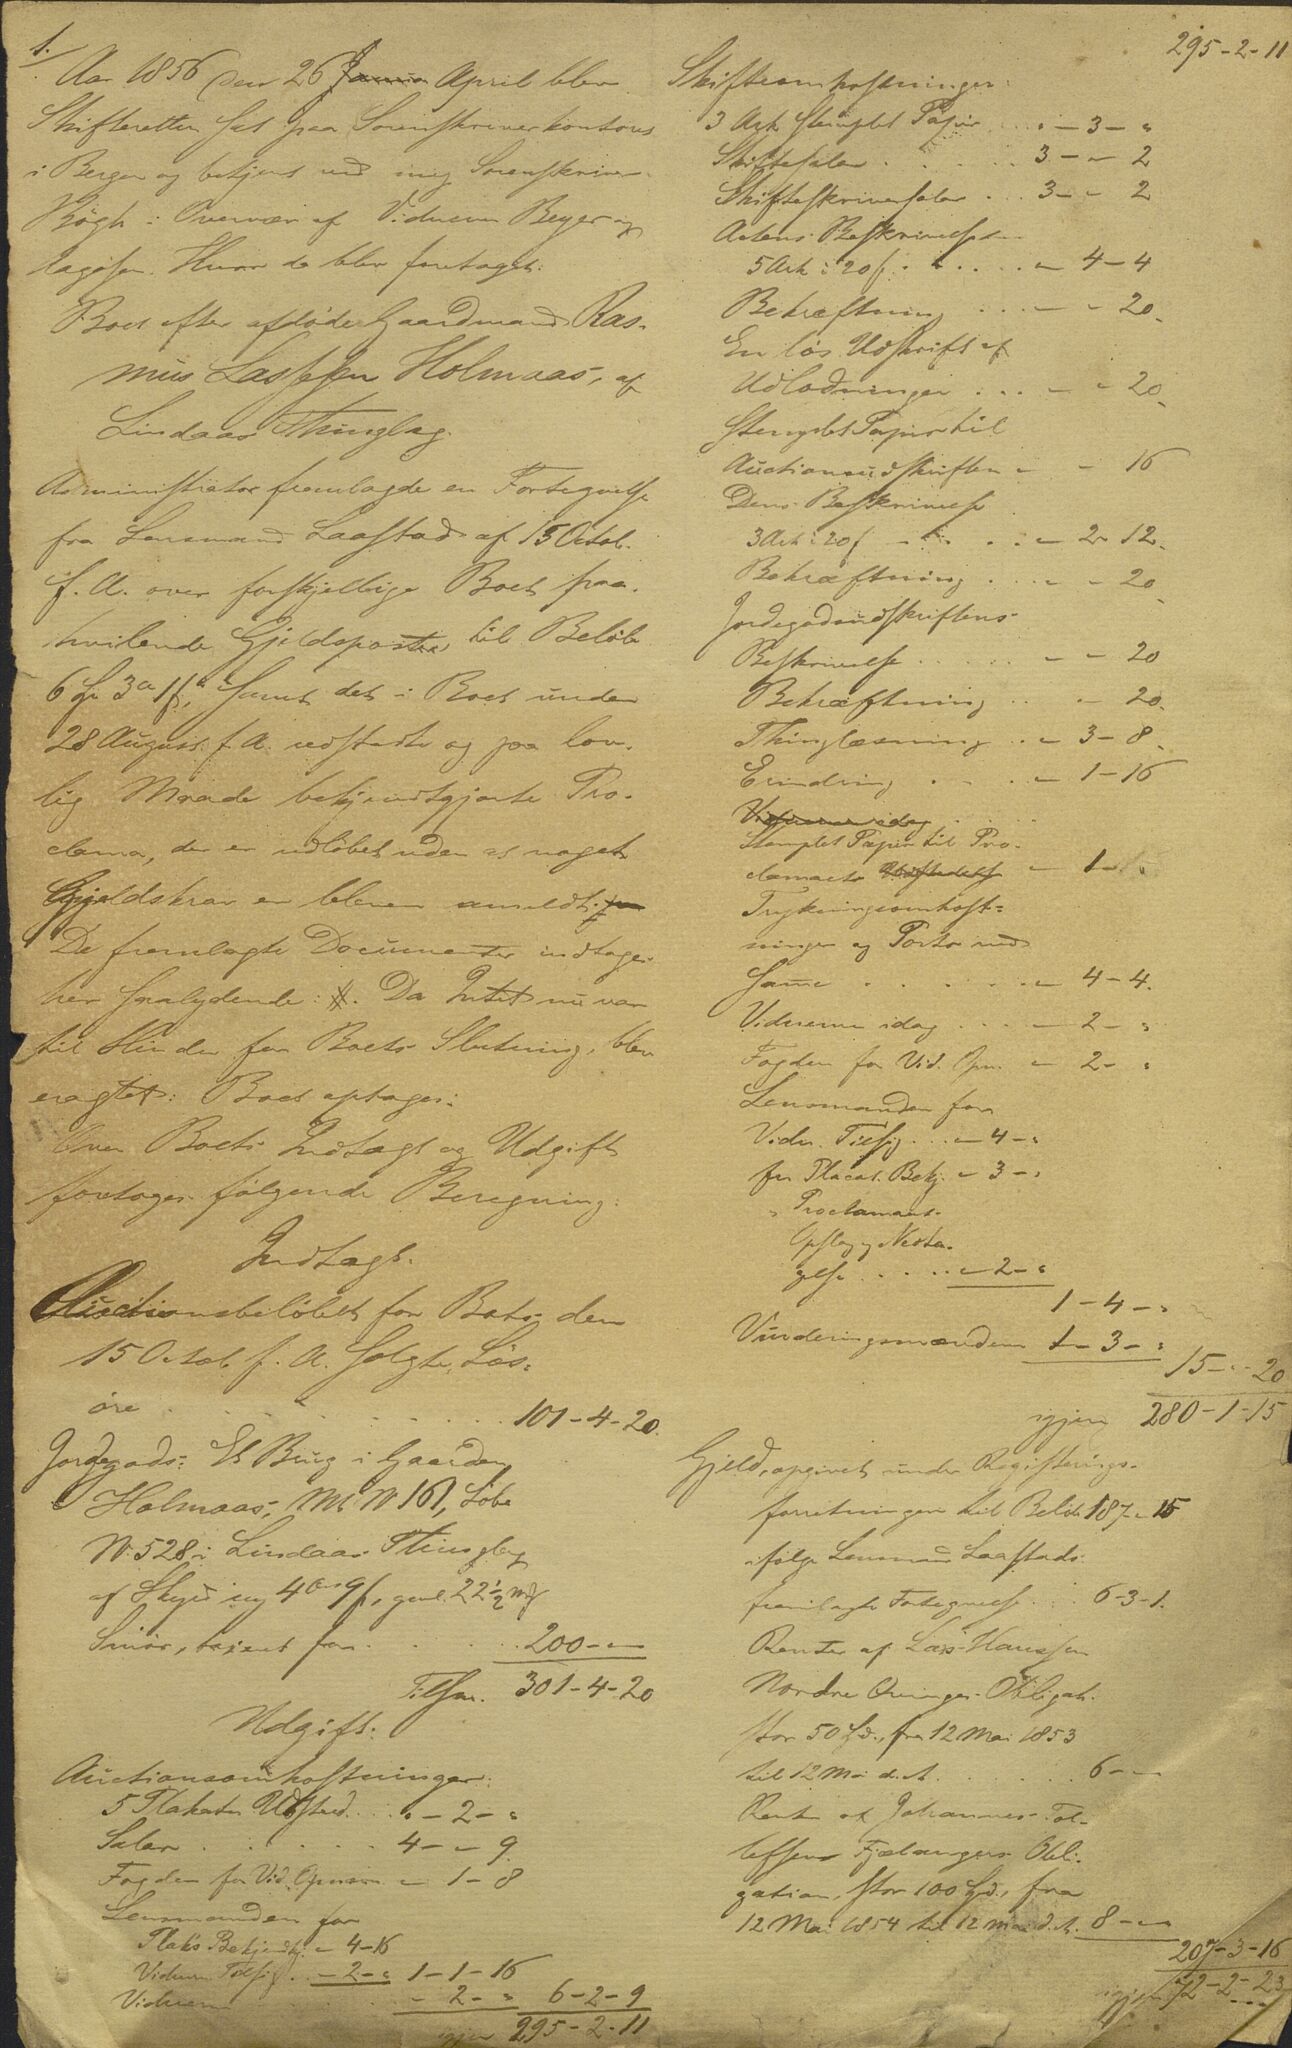 1.
Aar 1856 den 26 April blev
Skifteretten sat paa Sorenskriverkontoret
i Bergen og betjent ved mig Sorenskriver
Bøgh i Overvær af Vidnerne Beyer og
Hvor da blev foretaget:
Boet efter afdøde Gaardmand Ras-
mus Lassesen Holmaas, af
Lindaas Thinglag.
Administrator fremlagde en Fortegnelse
fra Lensmand Laastad af 15 Octob.
f. A. over forskjellige Boet paa-
hvilende Gjeldsposter, til Beløb
6 Spd 3 ort 1 s, samt det i Boet under
28 August f. A. udstædte og paa lov-
lig Maade bekjendtgjorte Pro-
clama, der er udløbet uden at noget
Gjeldskrav er bleven anmeldt.
De fremlagte Documenter indtages
her saalydende: #. Da Intet nu var
til Hinder for Boets Slutning, blev
eragtet: Boet optages:
Over Boets Indtægt og Udgift
foretages følgende Beregning:
Indtægt.
Auctionsbeløbet for Boets den
15 Octob. f. A. solgte Løs-
øre . . . . . . . . 101-4-20.
Jordegods: Et Brug i Gaarden
Holmaas, Mt. N 161, Løbe
N. 528 i Lindaas Thinglag
af Skyld ny 4 ort 9 s, gml. 22 1/2 mk
Smør, taxeret for . . . . . 200-"-"
Tilsm. 301-4-20
Udgift.
Auctionsomkostninger:
5 Plakater Udsted. . . "-2-"
Salær . . . . . 4-"-9
Fogden for Vid. Opnævn "-1-8
Lensmanden for
Plak's Bekjendtg. "-4-16
Vidnern. Tilsig. . . "-2-" 1-1-16
Vidnerne . . . . "-2-" 6-2-9
igjen 295-2-11
295-2-11
Skifteomkostninger:
3 Ark stemplet Papir . . . "-3-"
Skiftesalær . . . . . 3-"-2
Skifteskriversalær . . . 3-"-2
Actens Beskrivelse
5 Ark à 20 s . . . . . "-4-4
Bekræftning . . . "-"-20.
En løs Udskrift af
Udlodningen . . . "-"-20.
Stemplet Papir til
Auctionsudskriften "-"-16
Dens Beskrivelse
3 Ark à 20 s . . . . "-2-12.
Bekræftning . . . "-"-20.
Jordegodsudskriftens
Beskrivelse . . . . . "-"-20
Bekræftning . . . "-"-20.
Thinglæsning . . "-3-8.
Erindring . . . . "-1-16
Vidnerne idag
Stemplet Papir til Pro-
clamaets "-1-"
Trykningsomkost-
ninger og Porto med
Samme . . . . . . "-4-4.
Vidnerne idag . . . . "-2-"
Fogden for Vid. Opn. "-2-"
Lensmanden for
Vidn. Tilsig. . . "-4-"
for Placat. Bekj. "-3-"
" Proclamaets
Opslag og Nedta-
gelse . . . . "-2-"
1-4-"
Vurderingsmændene 1-3-"
15-"-20
igjen 280-1-15
Gjeld, opgivet under Registrerings-
forretningen til Beløb 187-"-15
ifølge Lensmand Laastads
fremlagte Fortegnelse . . . 6-3-1.
Renter af Lars Hanssen
Nordre Qvinges Obligat.
stor 50 Spd., fra 12 Mai 1853
til 12 Mai d. A. . . . . . 6-"-"
Renter af Johannes Tol-
lefsens Fjælangers Obli-
gation, stor 100 Spd., fra
12 Mai 1854 til 12 Mai d. A. 8-"-"
207-3-16
igjen 72-2-23